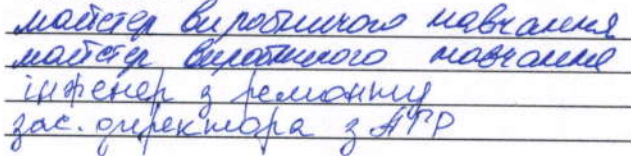 майстер виробничого навчання
майстер виробничого навчання
інженер з ремонту
зас. директора з АГР